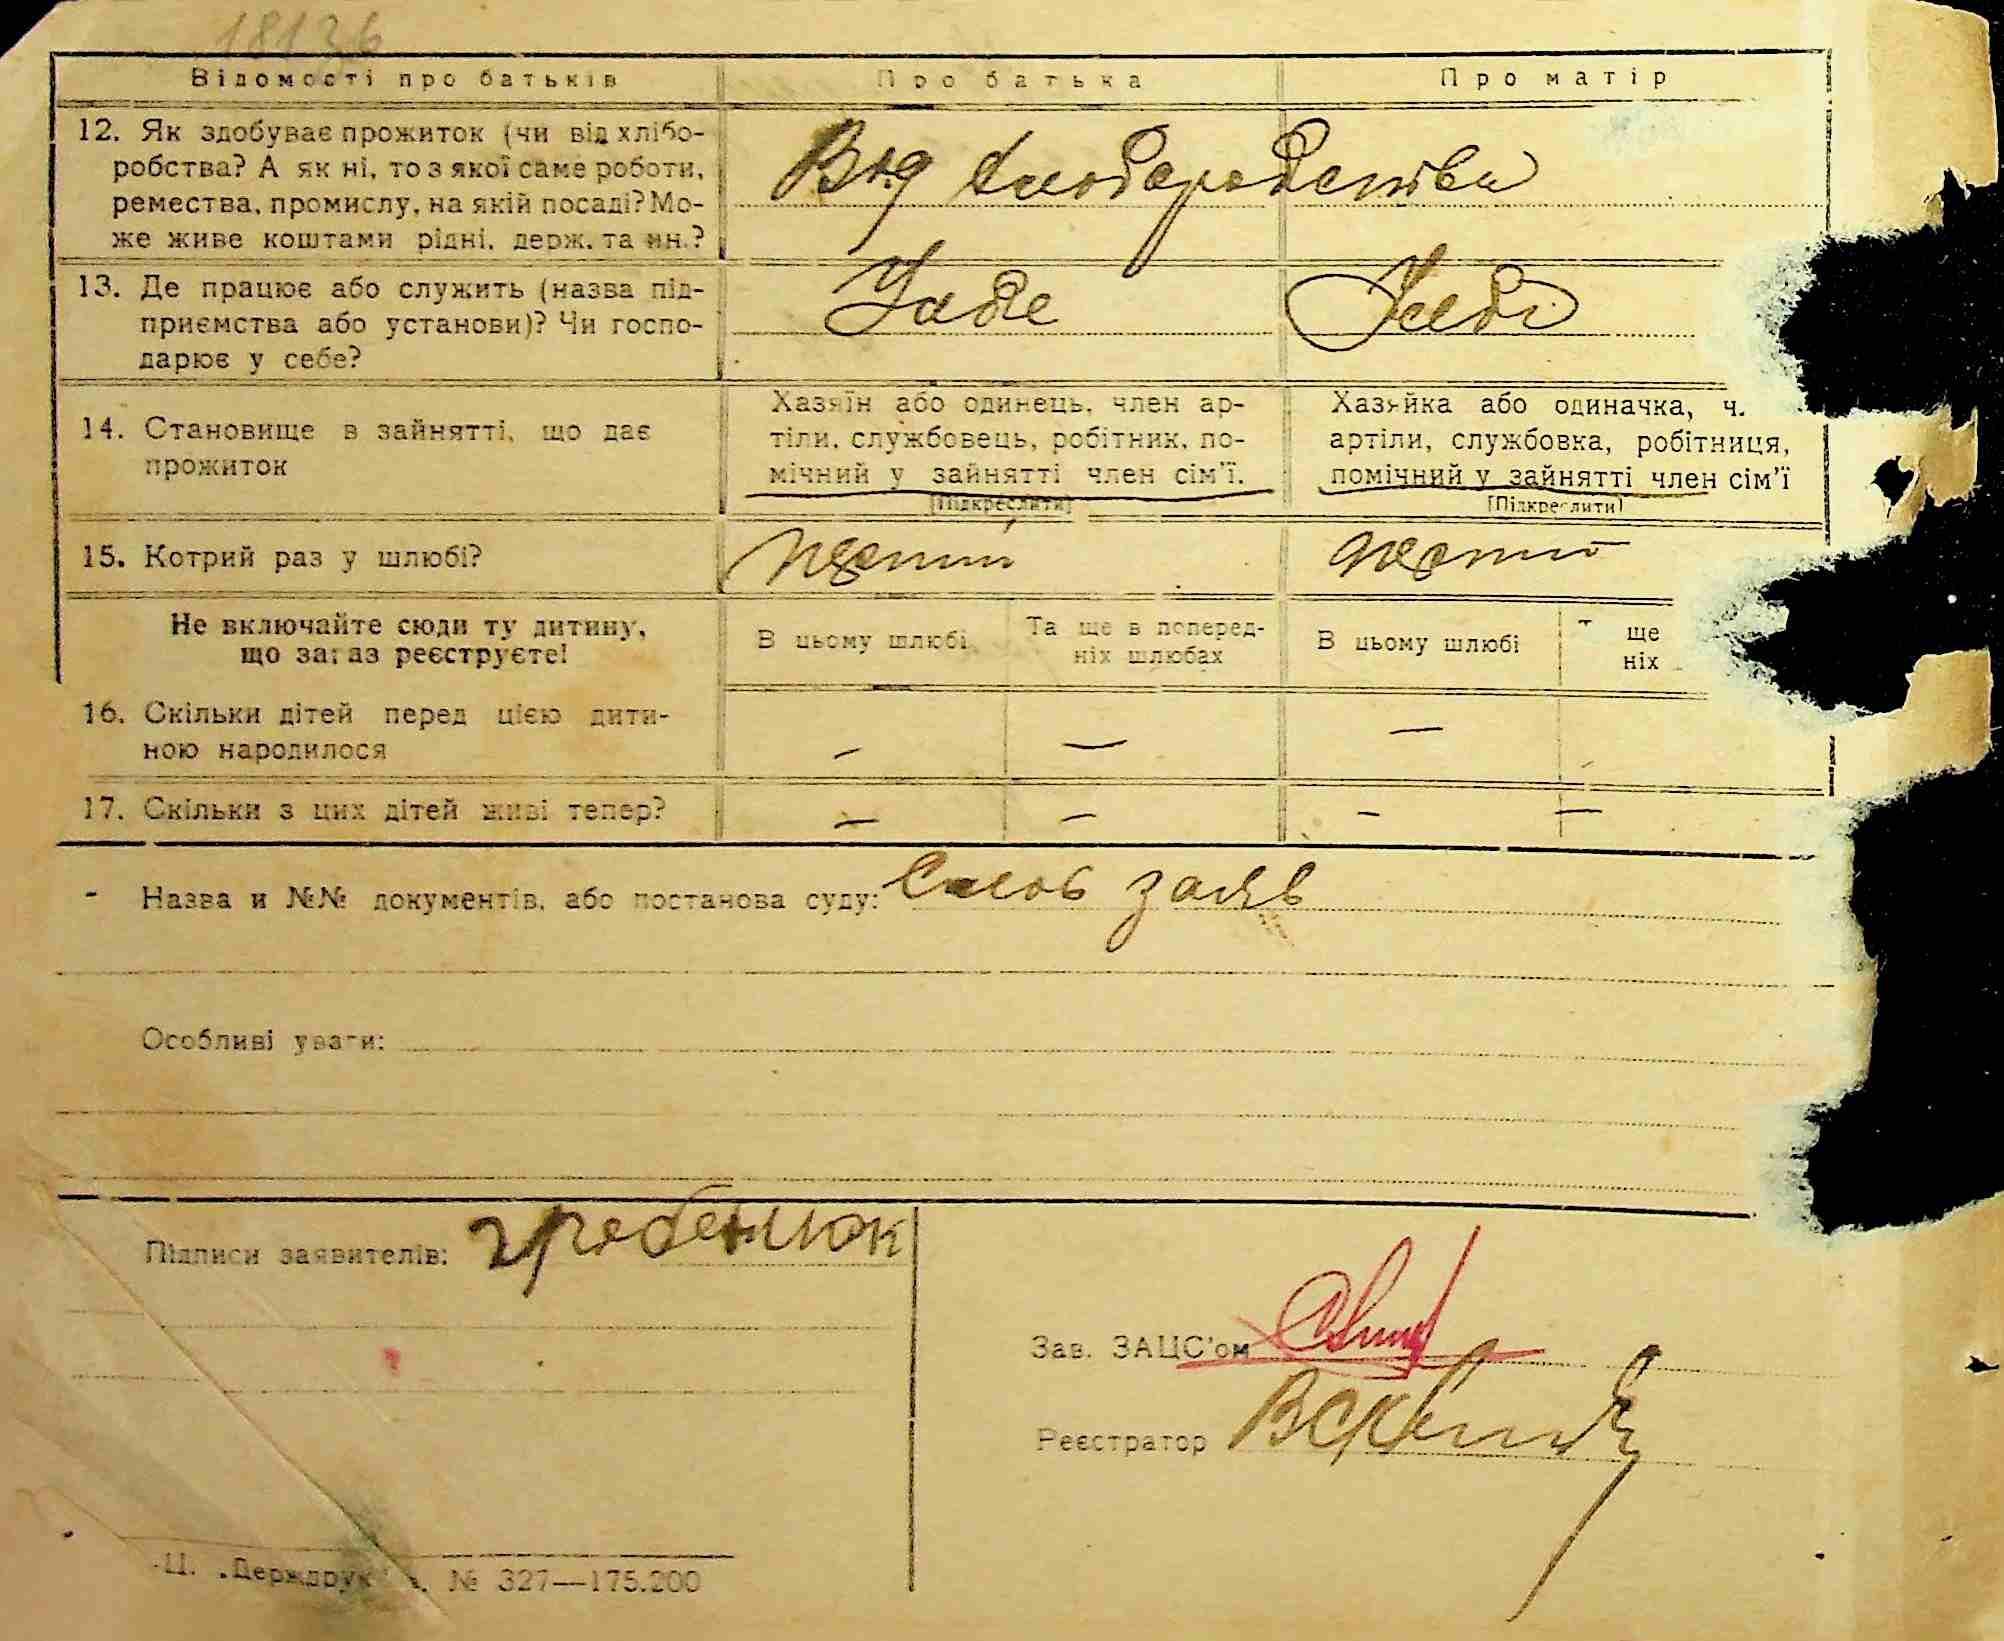 18136
Відомості про батьків Про батька Про матір
12. Як здобуває прожиток (чи від хлібо-
робства? А як ні, то з якої саме роботи,
ремества, промислу, на якій посаді? Мо-
же живе коштами рідні, держ. та ин.?
Від хліборобства
13. Де працює або служить (назва під-
приємства або установи)? Чи госпо-
дарює у себе?
У себе У себе
14. Становище в зайнятті, що дає
прожиток
Хазяїн або одинець, член ар-
тіли, службовець, робітник, по-
мічний у зайнятті член сім'ї.
[Підкреслити]
Хазяйка або одиначка, ч.
артіли, службовка, робітниця,
помічний у зайнятті член сім'ї
[Підкреслити]
15. Котрий раз у шлюбі?
Не включайте сюди ту дитину,
що зараз реєструєте!
В цьому шлюбі Та ще в поперед-
ніх шлюбах
В цьому шлюбі ще
ніх
16. Скільки дітей перед цією дити-
ною народилося
— — —
17. Скільки з цих дітей живі тепер?
— — — —
- Назва и №№ документів, або постанова суду: Слов заяв
Особливі уваги:
Підписи заявителів: гребенюк
Зав. ЗАЦС'ом
Реєстратор
Ц. „Держдрук № 327—175.200